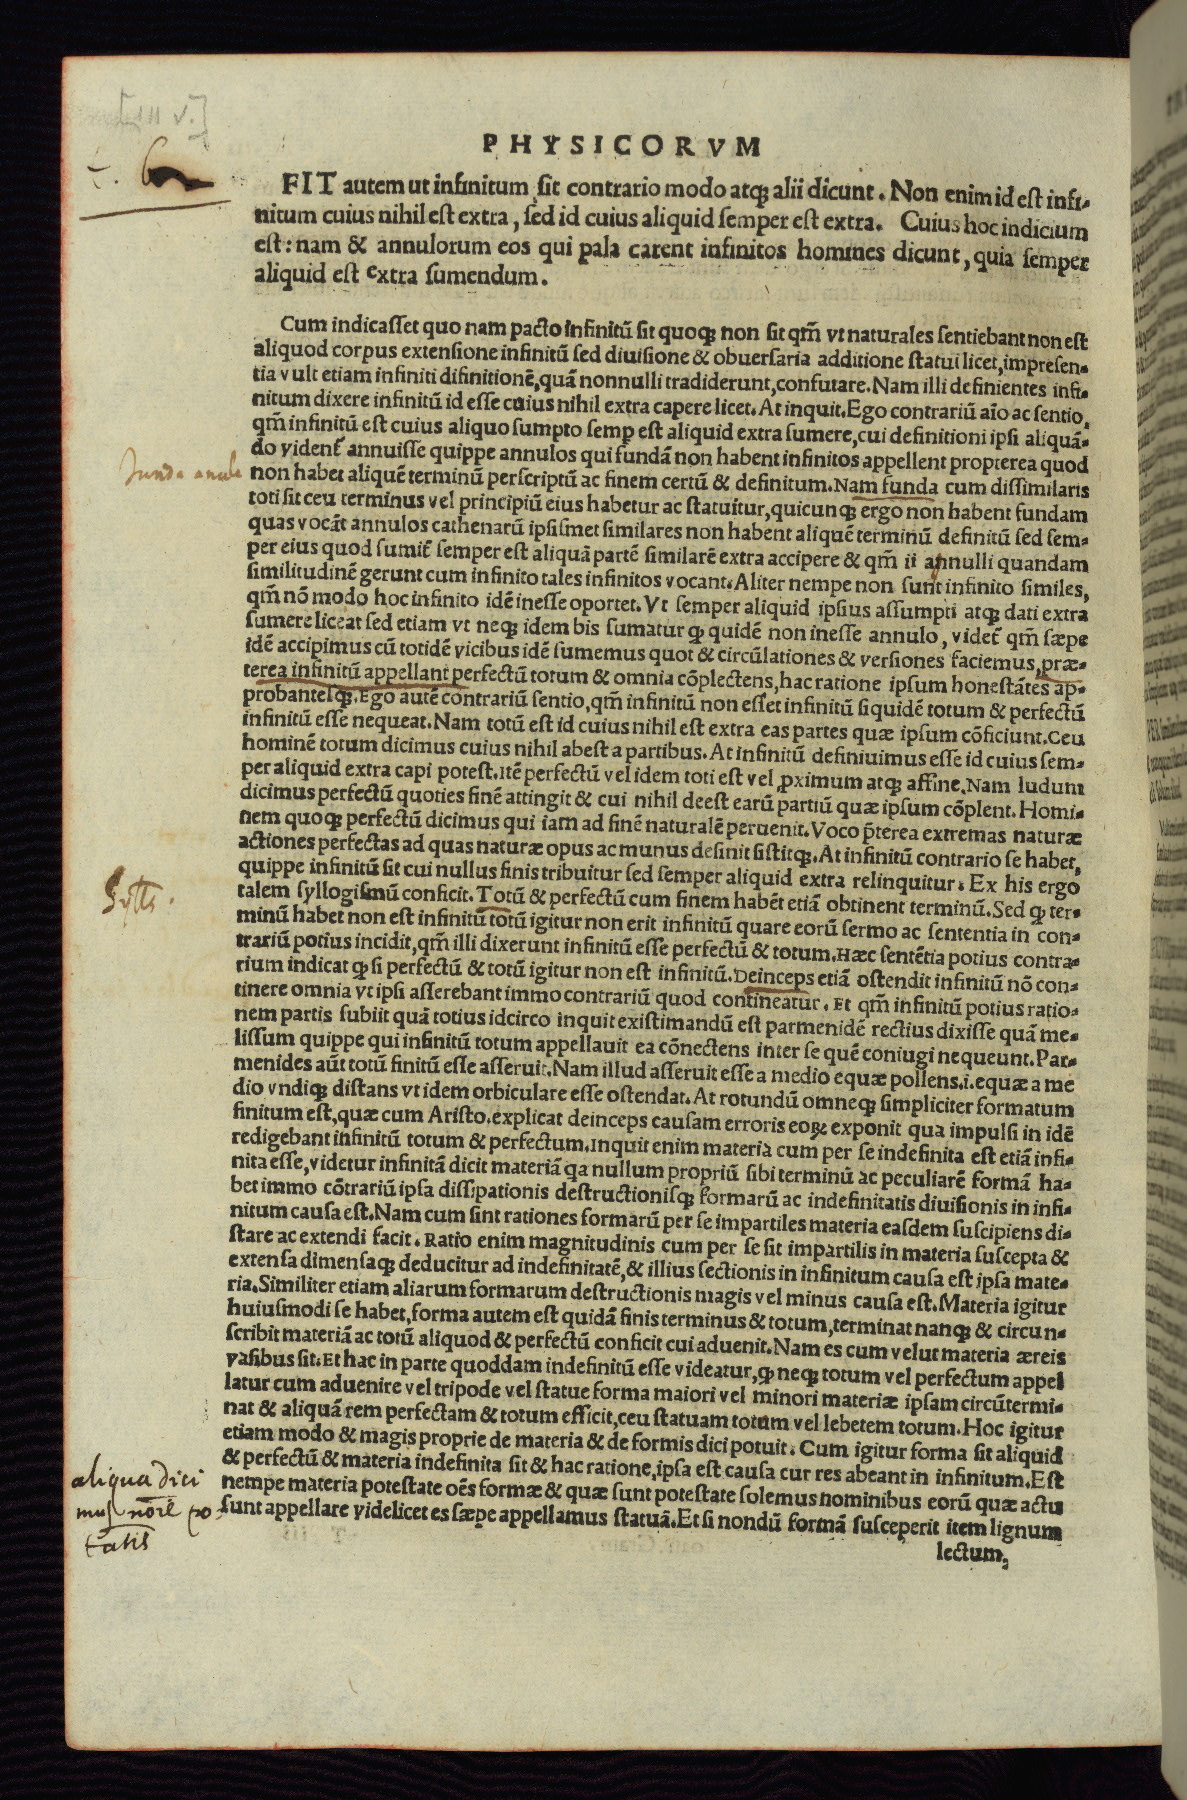 PHYSICORVM
FIT autem ut infinitum sit contrario modo atqꝫ alii dicunt. Non enim id est infi-
nitum cuius nihil est extra, sed id cuius aliquid semper est extra. Cuius hoc indicium
est: nam & annulorum eos qui pala carent infinitos homines dicunt, quia semper
aliquid est extra sumendum.
Cum indicasset quo nam pacto infinitū sit quoqꝫ non sit qm̄ vt naturales sentiebant non est
aliquod corpus extensione infinitū sed diuisione & obuersaria additione statui licet, impresen-
tia vult etiam infiniti difinitionē, quā nonnulli tradiderunt, confutare. Nam illi definientes infi-
nitum dixere infinitū id esse cuius nihil extra capere licet. At inquit. Ego contrariū aio ac sentio,
qm̄ infinitū est cuius aliquo sumpto semꝑ est aliquid extra sumere, cui definitioni ipsi aliquā-
do videnť annuisse quippe annulos qui fundā non habent infinitos appellent propterea quod
non habet aliquē terminū perscriptū ac finem certū & definitum. Nam funda cum dissimilaris
toti sit ceu terminus vel principiū eius habetur ac statuitur, quicunqꝫ ergo non habent fundam
quas vocāt annulos cathenarū ipsismet similares non habent aliquē terminū definitū sed sem-
per eius quod sumiť semper est aliquā partē similarē extra accipere & qm̄ ii annulli quandam
similitudinē gerunt cum infinito tales infinitos vocant. Aliter nempe non sunt infinito similes,
qm̄ nō modo hoc infinito idē inesse oportet. Vt semper aliquid ipsius assumpti atqꝫ dati extra
sumere liceat sed etiam vt neqꝫ idem bis sumatur ꝙ quidē non inesse annulo, videť qm̄ sæpe
idē accipimus cū totidē vicibus idē sumemus quot & circūlationes & versiones faciemus, præ-
terea infinitū appellant perfectū totum & omnia cōplectens, hac ratione ipsum honestātes ap-
probantesqꝫ. Ego autē contrariū sentio, qm̄ infinitū non esset infinitū siquidē totum & perfectū
infinitū esse nequeat. Nam totū est id cuius nihil est extra eas partes quæ ipsum cōficiunt. Ceu
hominē totum dicimus cuius nihil abest a partibus. At infinitū definiuimus esse id cuius sem-
per aliquid extra capi potest. Itē perfectū vel idem toti est vel ꝓximum atqꝫ affine. Nam ludum
dicimus perfectū quoties finē attingit & cui nihil deest earū partiū quæ ipsum cōplent. Homi-
nem quoqꝫ perfectū dicimus qui iam ad finē naturalē peruenit. Voco p̄terea extremas naturæ
actiones perfectas ad quas naturæ opus ac munus desinit sistitqꝫ. At infinitū contrario se habet,
quippe infinitū sit cui nullus finis tribuitur sed semper aliquid extra relinquitur. Ex his ergo
talem syllogismū conficit. Totū & perfectū cum finem habēt etiā obtinent terminū. Sed ꝙ ter-
minū habet non est infinitū totū igitur non erit infinitū quare eorū sermo ac sententia in con-
trariū potius incidit, qm̄ illi dixerunt infinitū esse perfectū & totum. Hæc sentētia potius contra-
rium indicat ꝙ si perfectū & totū igitur non est infinitū. Deinceps etiā ostendit infinitū nō con-
tinere omnia vt ipsi asserebant immo contrariū quod contineatur. Et qm̄ infinitū potius ratio-
nem partis subiit quā totius idcirco inquit existimandū est parmenidē rectius dixisse quā me-
lissum quippe qui infinitū totum appellauit ea cōnectens inter se quē coniugi nequeunt. Par-
menides aūt totū finitū esse asseruit. Nam illud asseruit esse a medio equæ pollens .i. equæ a me
dio vndiqꝫ distans vt idem orbiculare esse ostendat. At rotundū omneqꝫ simpliciter formatum
finitum est, quæ cum Aristo. explicat deinceps causam erroris eoꝝ exponit qua impulsi in idē
redigebant infinitū totum & perfectum. Inquit enim materia cum per se indefinita est etiā infi-
nita esse, videtur infinitā dicit materiā qa nullum propriū sibi terminū ac peculiarē formā ha-
bet immo cōtrariū ipsa dissipationis destructionisqꝫ formarū ac indefinitatis diuisionis in infi-
nitum causa est. Nam cum sint rationes formarū per se impartiles materia easdem suscipiens di-
stare ac extendi facit. Ratio enim magnitudinis cum per se sit impartilis in materia suscepta &
extensa dimensaqꝫ deducitur ad indefinitatē, & illius sectionis in infinitum causa est ipsa mate-
ria. Similiter etiam aliarum formarum destructionis magis vel minus causa est. Materia igitur
huiusmodi se habet, forma autem est quidā finis terminus & totum, terminat nanqꝫ & circun-
scribit materiā ac totū aliquod & perfectū conficit cui aduenit. Nam es cum velut materia æreis
vasibus sit. Et hac in parte quoddam indefinitū esse videatur, ꝙ neqꝫ totum vel perfectum appel
latur cum aduenire vel tripode vel statue forma maiori vel minori materiæ ipsam circūtermi-
nat & aliquā rem perfectam & totum efficit, ceu statuam totum vel lebetem totum. Hoc igitur
etiam modo & magis proprie de materia & de formis dici potuit. Cum igitur forma sit aliquid
& perfectū & materia indefinita sit & hac ratione, ipsa est causa cur res abeant in infinitum. Est
nempe materia potestate oēs formæ & quæ sunt potestate solemus nominibus eorū quæ actu
sunt appellare videlicet es sæpe appellamus statuā. Et si nondū formā susceperit item lignum
lectum,
t. 6
funda
Sylls.
aliqua dici
mus noīe po
tatis